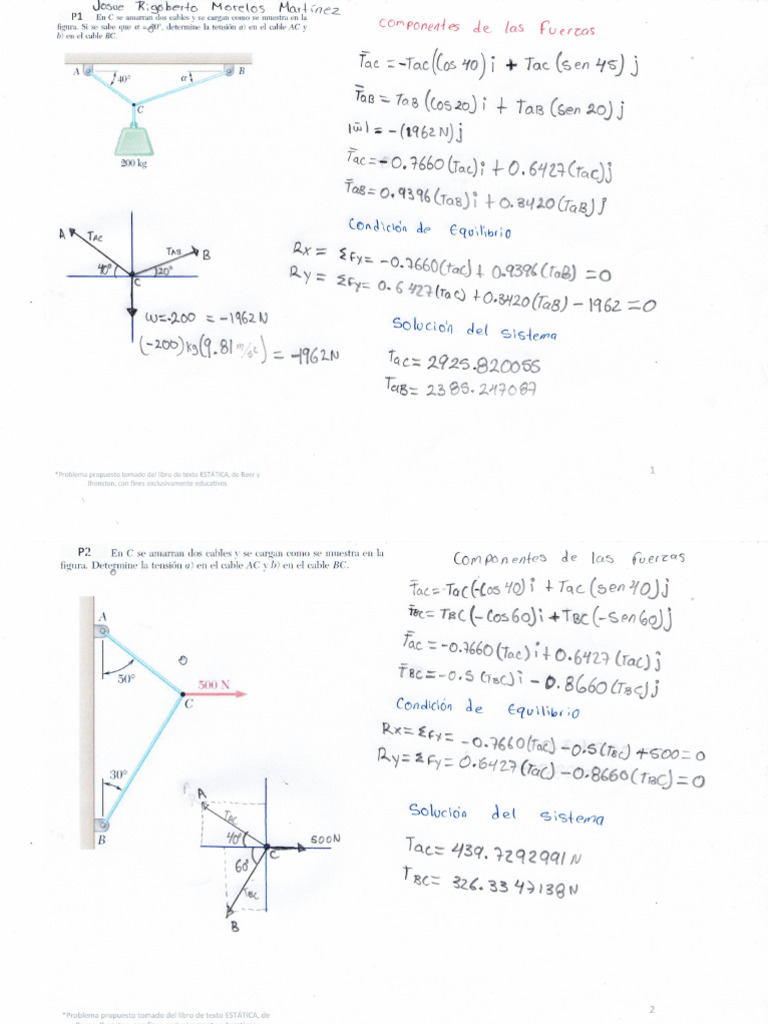 Josue Rigoberto Morelos Martínez
P1 En C se amarran dos cables y se cargan como se muestra en la
figura. Si se sabe que α = 20°, determine la tensión a) en el cable AC y
b) en el cable BC.
A
40°
α
B
C
200 kg
componentes de las fuerzas
T̄ac = -Tac(Cos 40)i + Tac(sen 45)j
T̄aB = TaB(Cos20)i + TaB(sen 20)j
|w̄| = -(1962N)j
T̄ac = -0.7660(Tac)i + 0.6427(Tac)j
T̄aB = 0.9396(TaB)i + 0.3420(TaB)j
Condición de Equilibrio
Rx = ΣFy = -0.7660(Tac) + 0.9396(TaB) = 0
Ry = ΣFy = 0.6427(Tac) + 0.3420(TaB) - 1962 = 0
Solución del sistema
Tac = 2925.820055
TaB = 2385.247087
A
TAC
TAB
B
40°
20°
C
w=-200 = -1962N
(-200)kg(9.81 m/s) = -1962N
*Problema propuesto tomado del libro de texto ESTÁTICA, de Beer y
Jhonston, con fines exclusivamente educativos
1
P2 En C se amarran dos cables y se cargan como se muestra en la
figura. Determine la tensión a) en el cable AC y b) en el cable BC.
A
50°
500 N
C
30°
B
Componentes de las fuerzas
T̄ac = -Tac(-Cos 40)i + Tac(sen 40)j
T̄BC = TBC(-Cos60)i + TBC(-Sen60)j
T̄ac = -0.7660(Tac)i + 0.6427(Tac)j
T̄BC = -0.5(TBC)i - 0.8660(TBC)j
Condición de Equilibrio
Rx = ΣFy = -0.7660(Tac) - 0.5(TBC) + 500 = 0
Ry = ΣFy = 0.6427(Tac) - 0.8660(TBC) = 0
Solución del sistema
Tac = 439.7292991 N
TBC = 326.3347138 N
A
TAC
40°
500N
C
60°
TBC
B
*Problema propuesto tomado del libro de texto ESTÁTICA, de
2